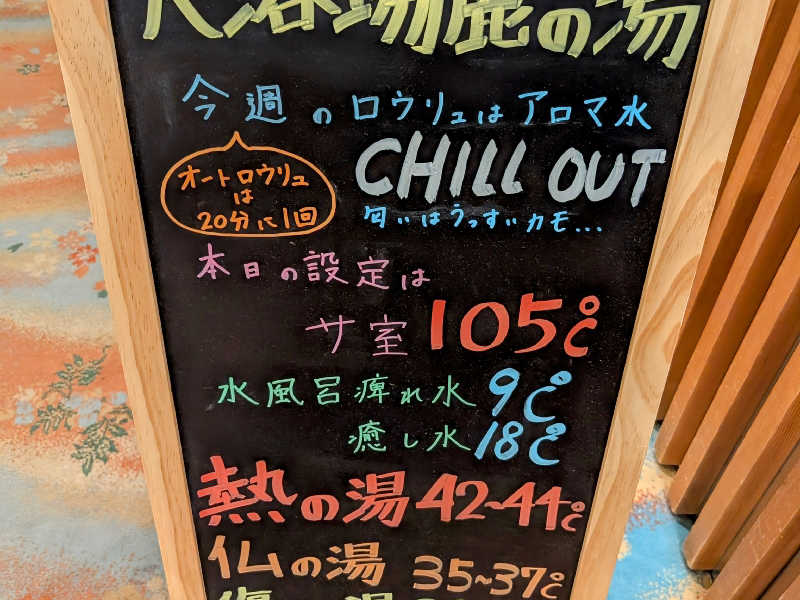 大浴場鹿の湯
今週のロウリュはアロマ水
オートロウリュ
は
20分に1回
CHILL OUT
匂いはうっすいカモ...
本日の設定は
サ室 105℃
水風呂痺れ水 9℃
癒し水 18℃
熱の湯 42~44℃
仏の湯 35~37℃